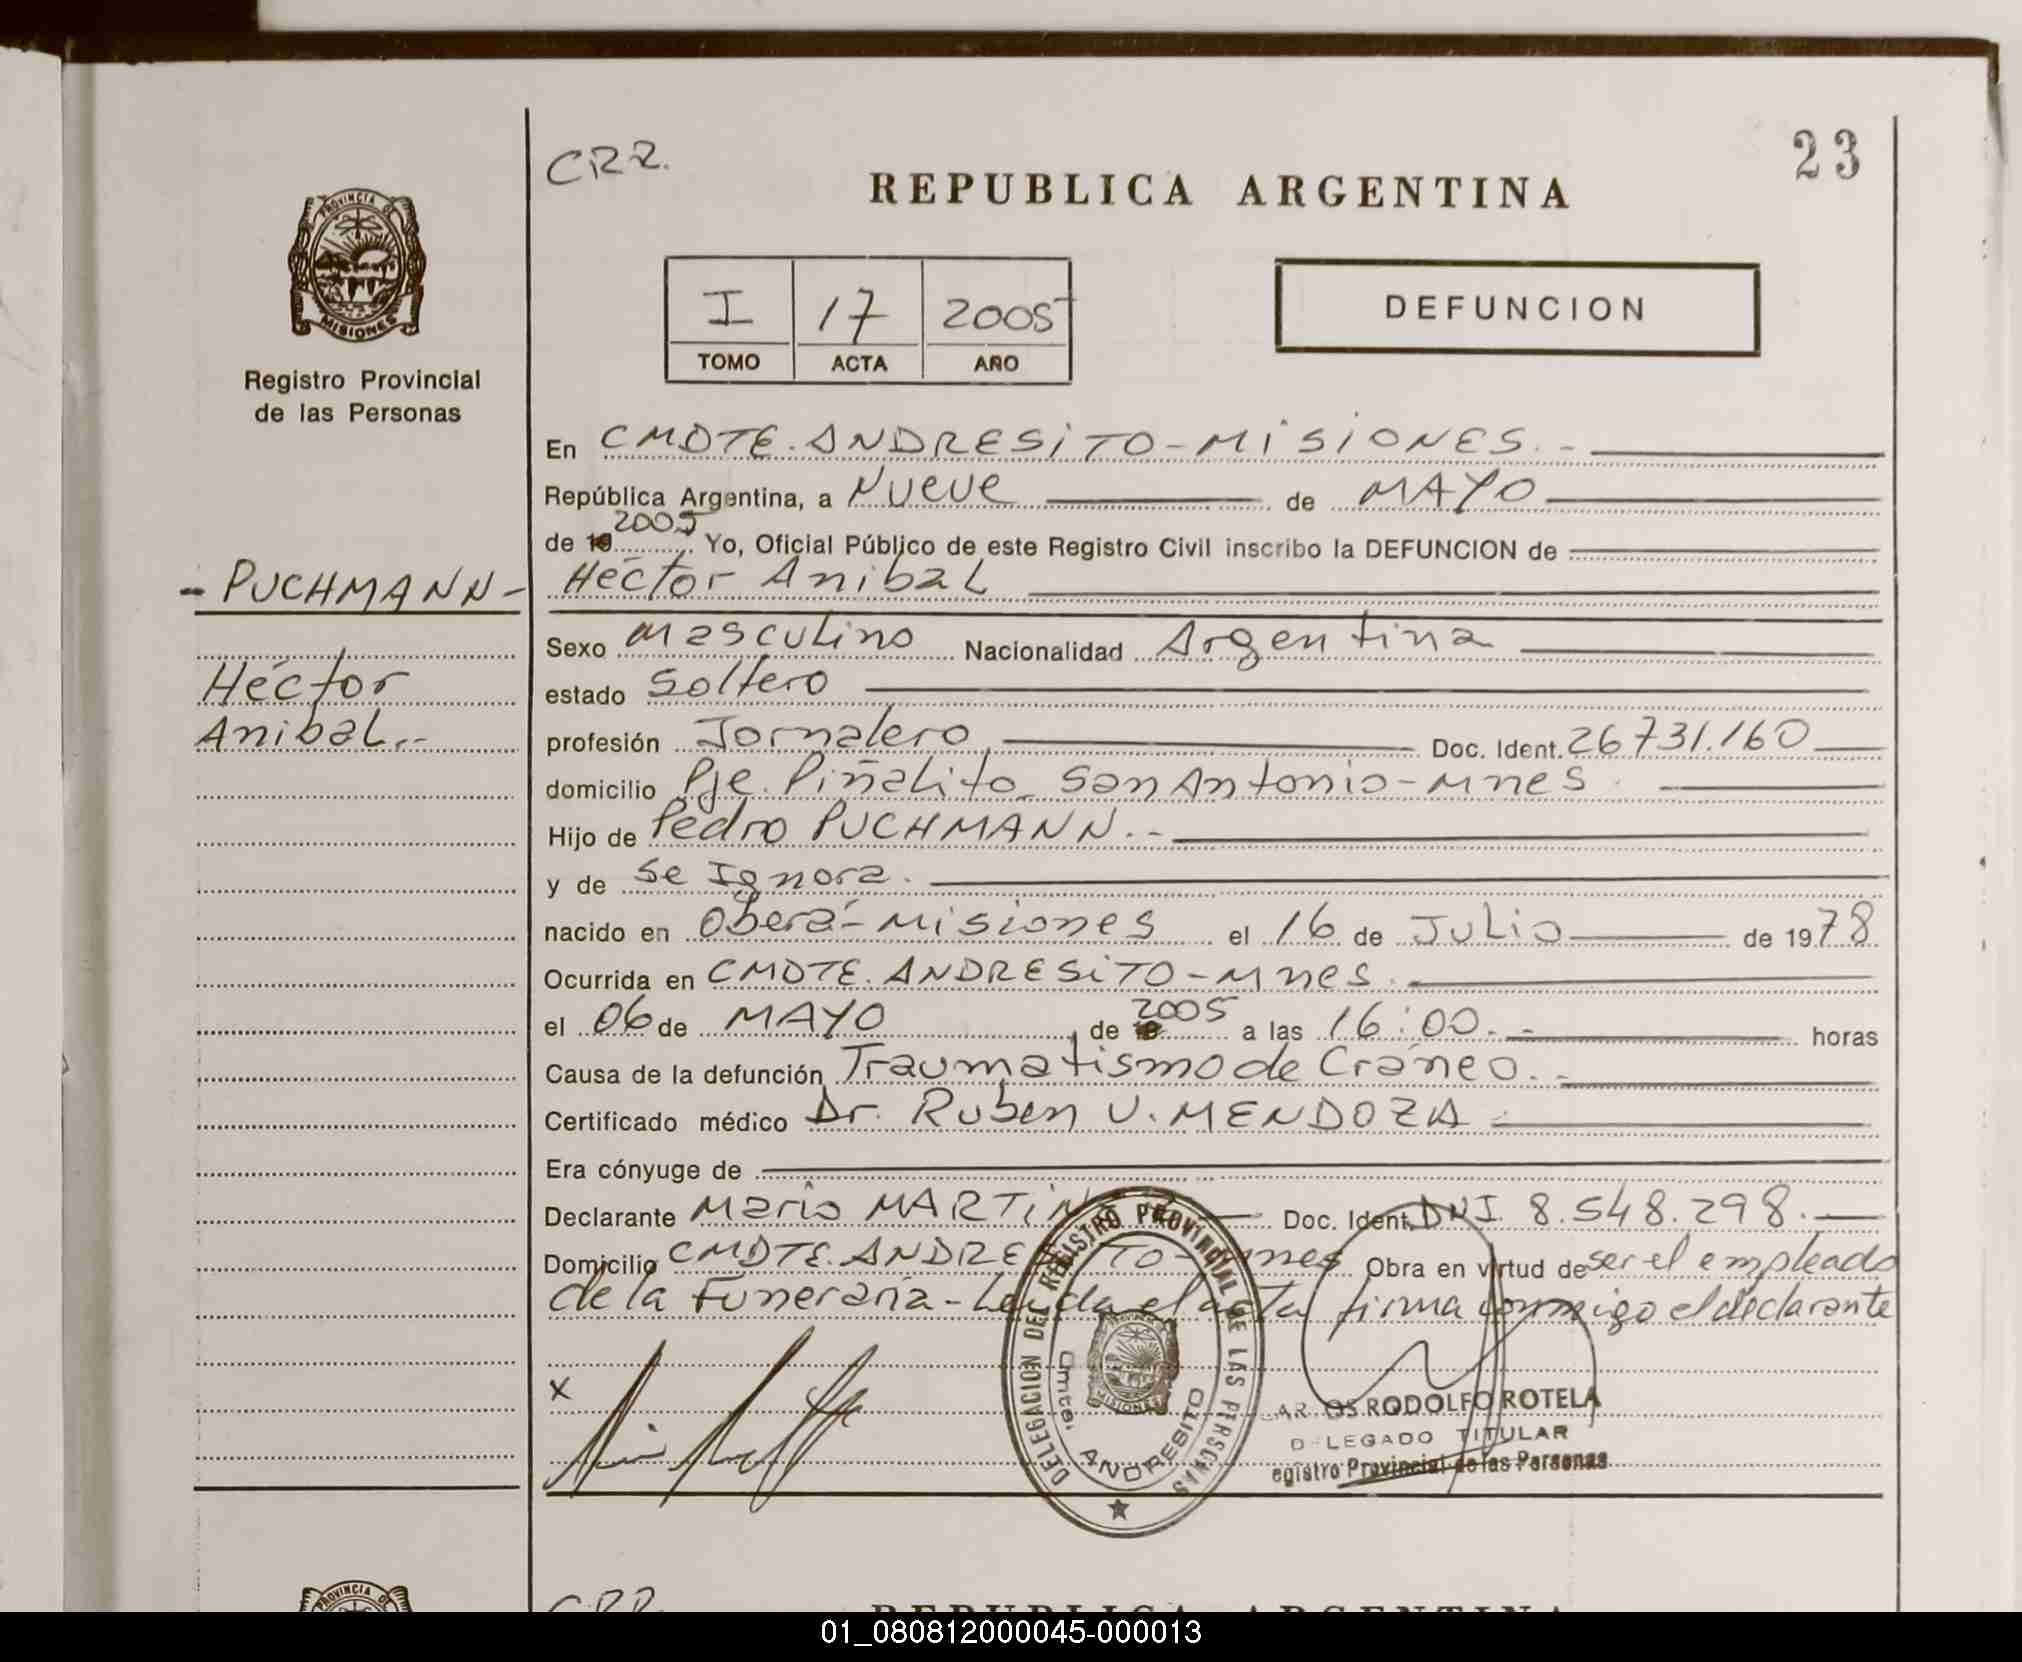 CRR.
23
REPUBLICA ARGENTINA
PROVINCIA DE
MISIONES
Registro Provincial
de las Personas
I 17 2005
TOMO ACTA AÑO
DEFUNCION
En CMDTE. ANDRESiTO - MiSiONES. -
República Argentina, a Nueve de MAYO
de 19 2005 Yo, Oficial Público de este Registro Civil inscribo la DEFUNCION de
- PUCHMANN -
Héctor Anibal
Héctor
Anibal.-
Sexo Masculino Nacionalidad Argentina
estado Soltero
profesión Jornalero Doc. Ident. 26731.160
domicilio Pje. Piñalito San Antonio - Mnes
Hijo de Pedro PUCHMANN. -
y de se Ignora.
nacido en Oberá - Misiones el 16 de Julio de 1978
Ocurrida en CMDTE. ANDRESiTO - Mnes.
el 06 de MAYO de 19 2005 a las 16:00. - horas
Causa de la defunción Traumatismo de Cráneo. -
Certificado médico Dr. Ruben V. MENDOZA
Era cónyuge de
Declarante Mario MARTiN Doc. Ident. DNI 8.548.298. -
Domicilio CMDTE. ANDRE TO - nes Obra en virtud de ser el empleado
de la Funeraria - Leída el acta firma conmigo el declarante
X
DELEGACION DEL REGISTRO PROVINCIAL DE LAS PERSONAS
Cmte. ANDRESITO
MISIONES
AR OS RODOLFO ROTELA
D LEGADO TITULAR
egistro Provincial de las Personas
PROVINCIA DE
CRR.
REPUBLICA ARGENTINA
01_080812000045-000013